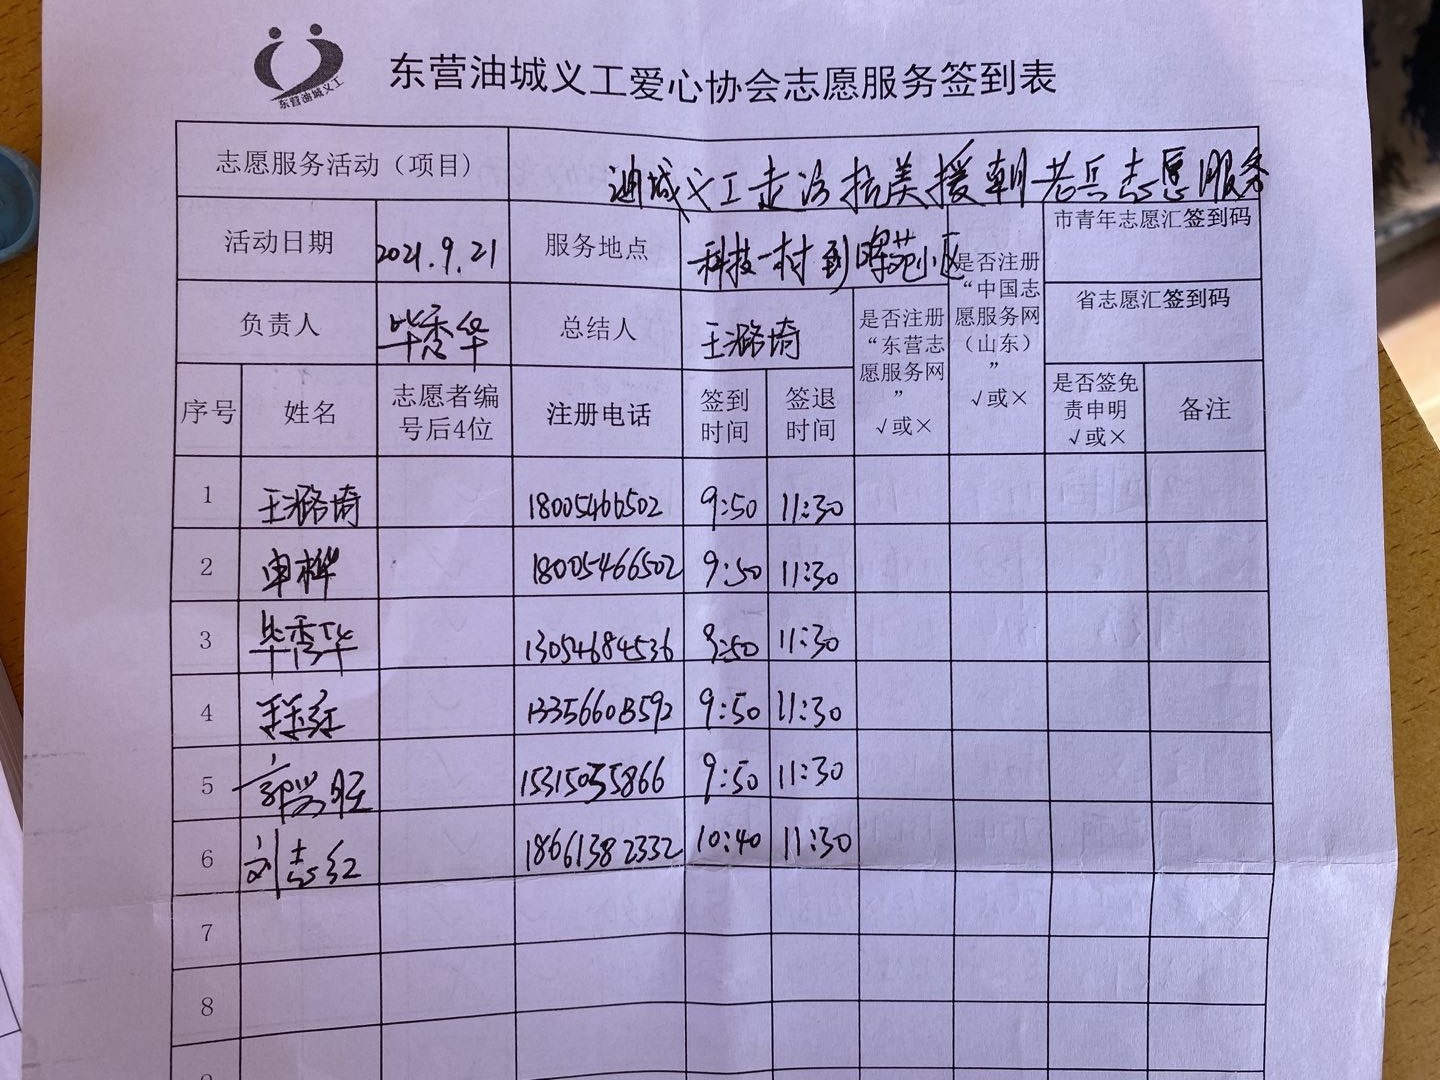 东营油城义工
东营油城义工爱心协会志愿服务签到表
志愿服务活动（项目） 油城义工走访抗美援朝老兵志愿服务
活动日期 2021.9.21 服务地点 科技一村到晖苑小区
市青年志愿汇签到码
省志愿汇签到码
负责人 毕秀华 总结人 王潞埼
是否注册
“东营志
愿服务网
”
√或×
是否注册
“中国志
愿服务网
（山东）
”
√或×
序号 姓名
志愿者编
号后4位
注册电话
签到
时间
签退
时间
是否签免
责申明
√或×
备注
1 王潞埼 18005466502 9:50 11:30
2 申桦 18005466502 9:50 11:30
3 毕秀华 13054684536 9:50 11:30
4 9:50 11:30
5 9:50 11:30
6 刘志红 18661382332 10:40 11:30
7
8